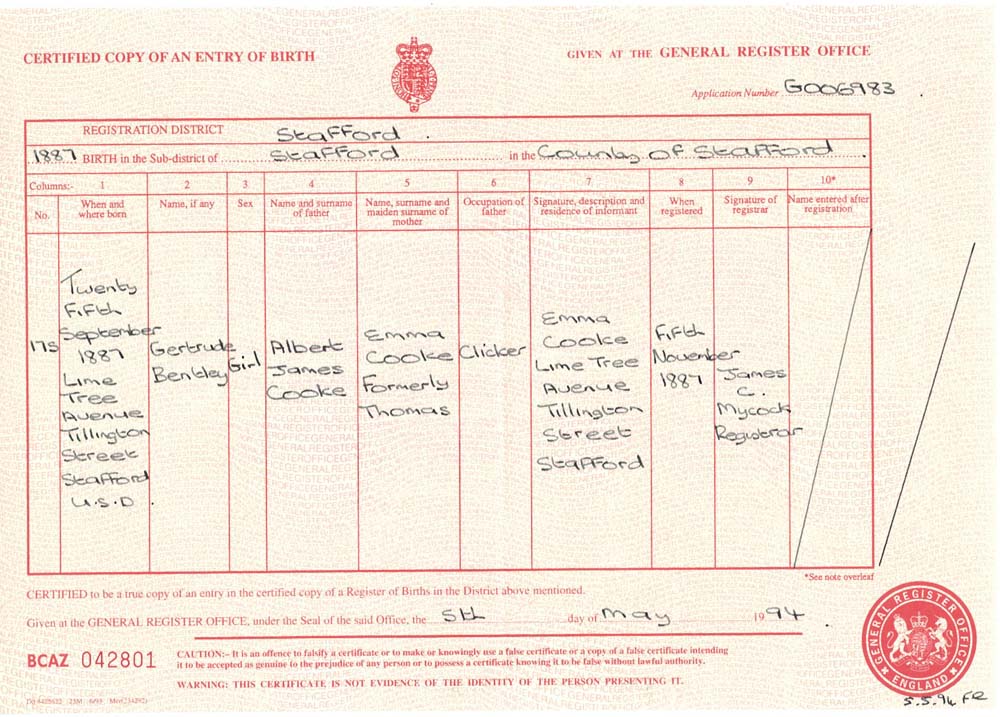 CERTIFIED COPY OF AN ENTRY OF BIRTH
GIVEN AT THE GENERAL REGISTER OFFICE
Application Number G006983
REGISTRATION DISTRICT Stafford
1887 BIRTH in the Sub-district of Stafford in the County of Stafford
Columns:- 1 2 3 4 5 6 7 8 9 10*
No.
When and
where born
Name, if any
Sex
Name and surname
of father
Name, surname and
maiden surname of
mother
Occupation of
father
Signature, description and
residence of informant
When
registered
Signature of
registrar
Name entered after
registration
175
Twenty
Fifth
September
1887
Lime
Tree
Avenue
Tillington
Street
Stafford
U.S.D.
Gertrude
Bentley
Girl
Albert
James
Cooke
Emma
Cooke
Formerly
Thomas
Clicker
Emma
Cooke
Lime Tree
Avenue
Tillington
Street
Stafford
Fifth
November
1887
James
C.
Mycock
Registrar
*See note overleaf
CERTIFIED to be a true copy of an entry in the certified copy of a Register of Births in the District above mentioned.
Given at the GENERAL REGISTER OFFICE, under the Seal of the said Office, the 5th day of May 1994
BCAZ 042801
CAUTION:- It is an offence to falsify a certificate or to make or knowingly use a false certificate or a copy of a false certificate intending
it to be accepted as genuine to the prejudice of any person or to possess a certificate knowing it to be false without lawful authority.
WARNING: THIS CERTIFICATE IS NOT EVIDENCE OF THE IDENTITY OF THE PERSON PRESENTING IT.
GENERAL REGISTER OFFICE
ENGLAND
5.5.94